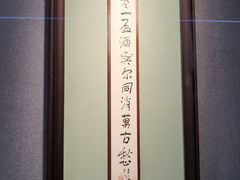 一盃酒與尔同消萬古愁